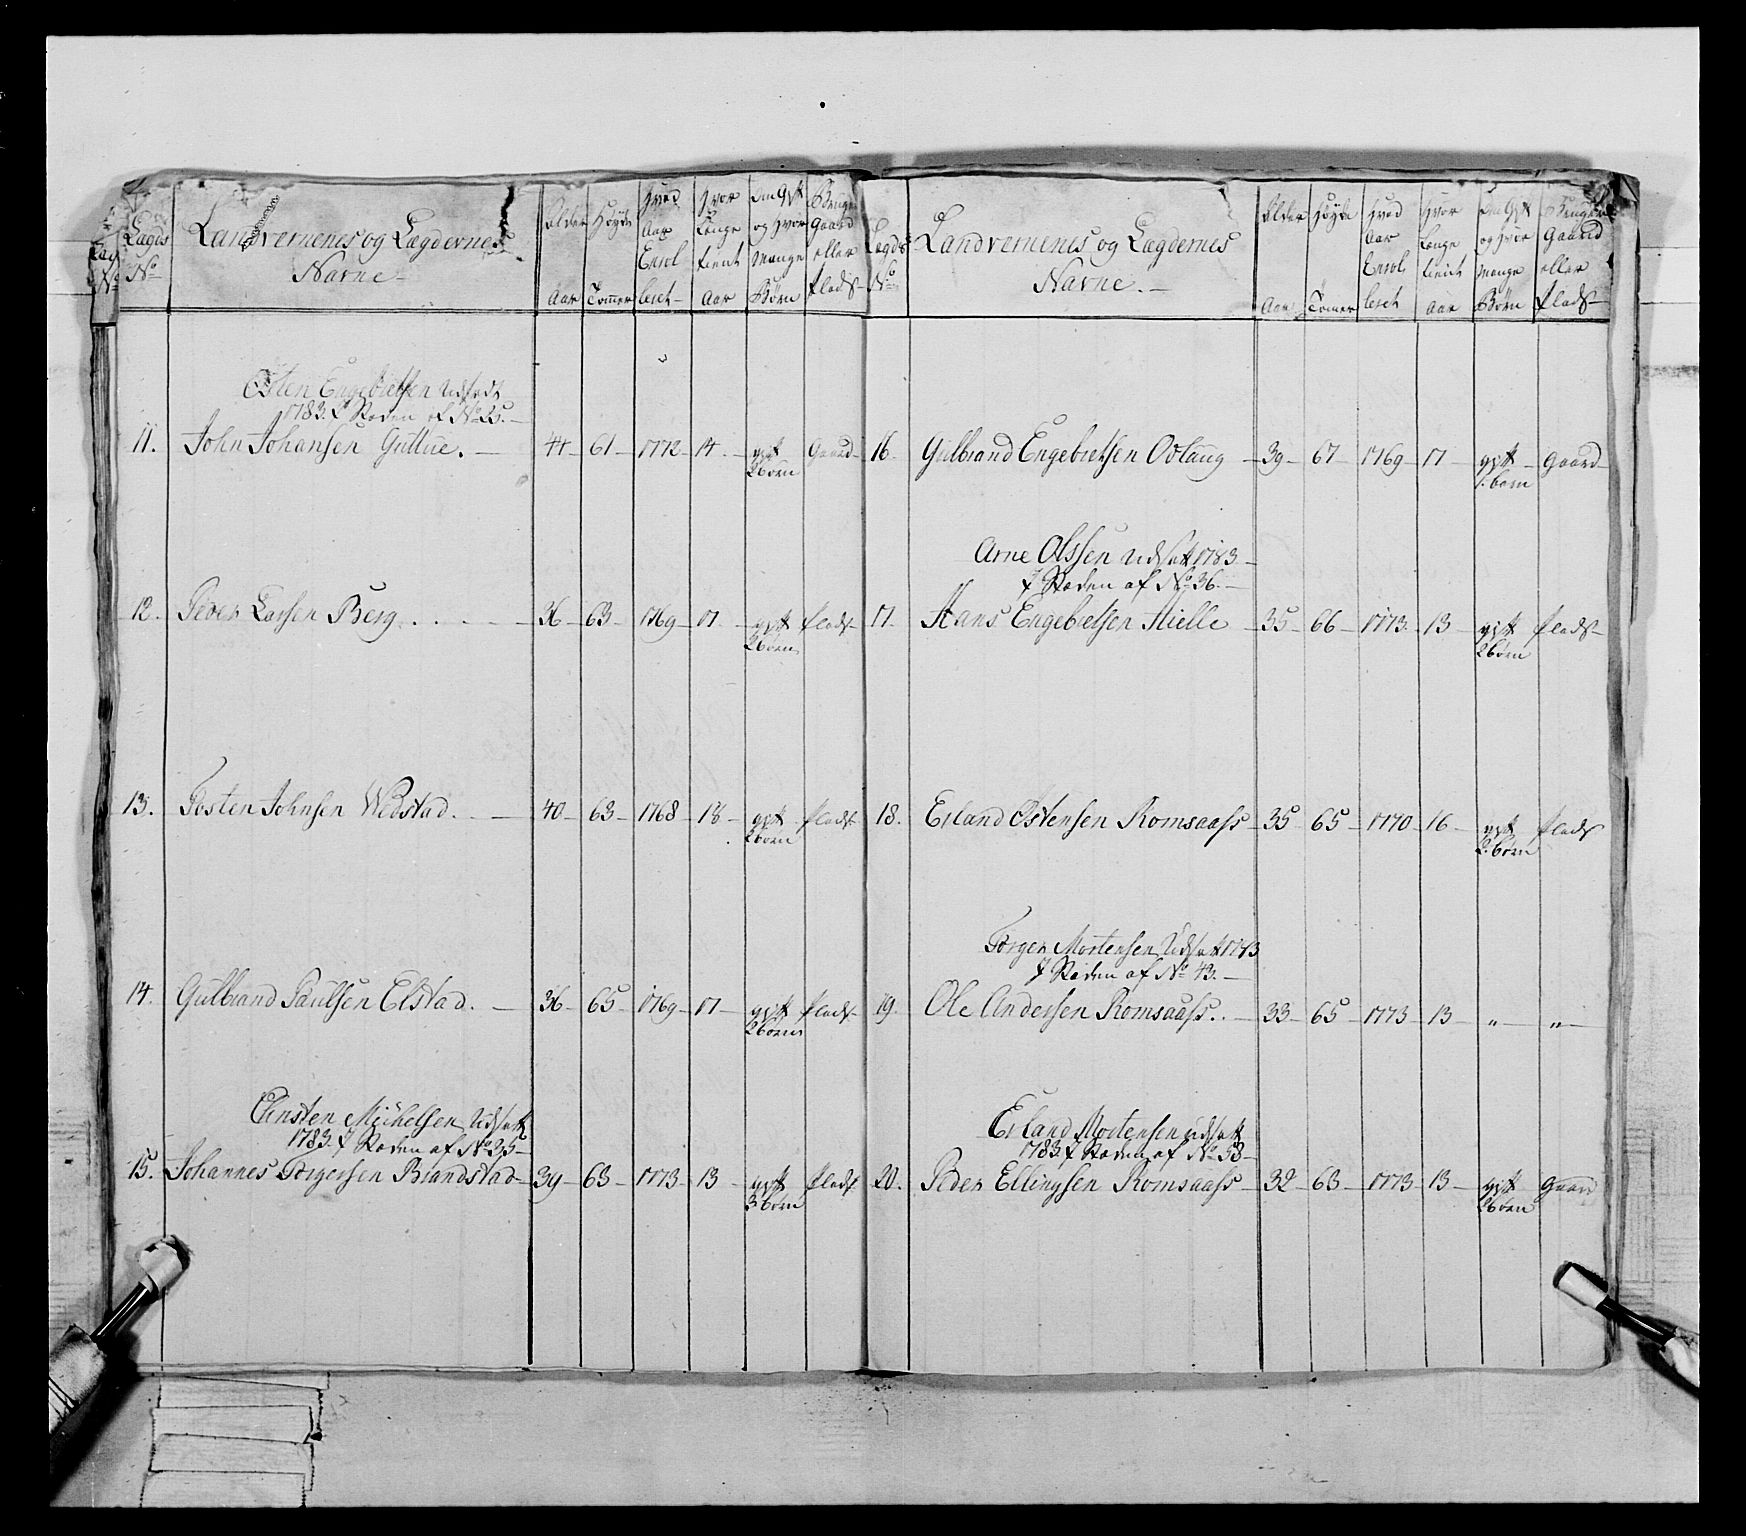 Lægds No
Landvernenes og Lægdernes Navne
Alder Aar
Høyde Tommer
Hvad Aar Enrolleret
Hvor Længe tient Aar
Om Gift og Hvor Mange Børn
Bruger Gaard eller Plads
Østen Engebretsen Udsadt
1783. I Stæden af No 25.
11. John Johansen Guttue. 44 61 1772 14 gift Gaard
2 børn
12. Peder Larsen Berg 36 63 1769 17 gift plads
2 børn
13. Tosten Johnsen Wedstad. 40 63 1768 18 gift plads
2 børn
14. Gulbrand Paulsen Elstad. 36 65 1769 17 gift plads
2 børn
Christen Michelsen Udsatt
1783. I Stæden af No 35
15. Johannes Torgersen Brandstad 39 63 1773 13 gift plads
3 børn
Lægds No
Landvernenes og Lægdernes Navne.
Alder Aar
Høyde Tommer
Hvad Aar Enrolleret
Hvor Længe tient Aar
Om Gift og Hvor Mange Børn
Bruger Gaard eller Plads
16. Gulbrand Engebretsen Odlaug 39 67 1769 17 gift Gaard
1. barn
Arne Olssen Udsatt 1783
I Stæden af No 36.
17. Hans Engebretsen Hielle 35 66 1773 13 gift plads
2 børn
18. Erland Østensen Romsaass 35 65 1770 16 gift plads
2. børn
Torger Mortensen Udsatt 1773
I Stæden af No 43.
19. Ole Andersen Romsaass. 33 65 1773 13 " "
Erland Mortensen udsatt
1783. I Stæden af No 58
20. Peder Ellingsen Romsaass 32 63 1773 13 gift Gaard
2 børn